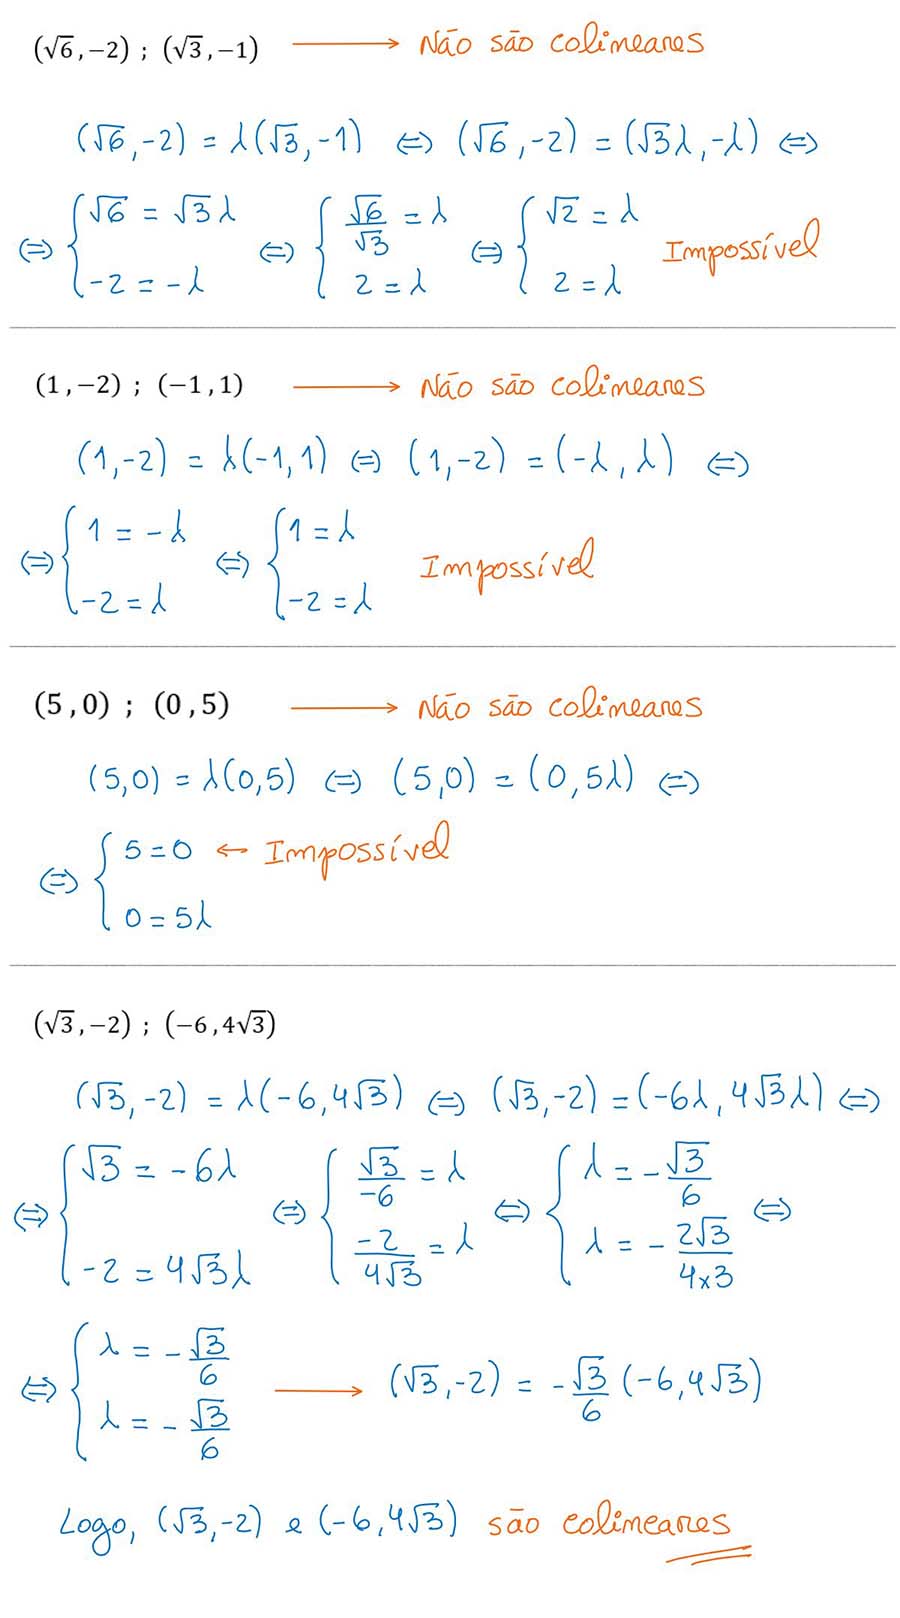 (√6, −2) ; (√3, −1) ⟶ Não são colineares
(√6, -2) = λ(√3, -1) ⇔ (√6, -2) = (√3λ, -λ) ⇔
⇔ { √6 = √3λ ; -2 = -λ ⇔ { √6/√3 = λ ; 2 = λ ⇔ { √2 = λ ; 2 = λ Impossível
(1, −2) ; (−1, 1) ⟶ Não são colineares
(1, -2) = λ(-1, 1) ⇔ (1, -2) = (-λ, λ) ⇔
⇔ { 1 = -λ ; -2 = λ ⇔ { 1 = λ ; -2 = λ Impossível
(5, 0) ; (0, 5) ⟶ Não são colineares
(5, 0) = λ(0, 5) ⇔ (5, 0) = (0, 5λ) ⇔
⇔ { 5 = 0 ← Impossível
0 = 5λ
(√3, −2) ; (−6, 4√3)
(√3, -2) = λ(-6, 4√3) ⇔ (√3, -2) = (-6λ, 4√3λ) ⇔
⇔ { √3 = -6λ ; -2 = 4√3λ ⇔ { √3/-6 = λ ; -2/4√3 = λ ⇔ { λ = -√3/6 ; λ = -2√3/4×3 ⇔
⇔ { λ = -√3/6 ; λ = -√3/6 ⟶ (√3, -2) = -√3/6 (-6, 4√3)
Logo, (√3, -2) e (-6, 4√3) são colineares